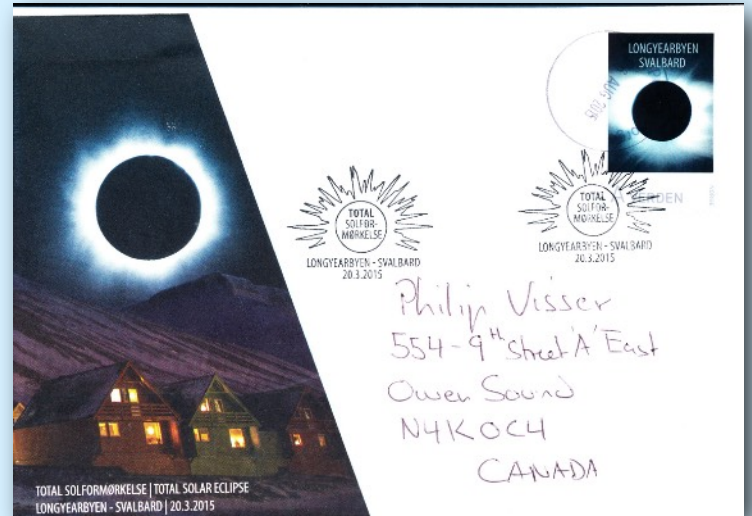 LONGYEARBYEN
SVALBARD
AUG 2015
VERDEN
TOTAL
SOLFOR-
MØRKELSE
LONGYEARBYEN - SVALBARD
20.3.2015
TOTAL
SOLFOR-
MØRKELSE
LONGYEARBYEN - SVALBARD
20.3.2015
Philip Visser
554-9th Street 'A' East
Owen Sound
N4K 0C4
CANADA
TOTAL SOLFORMØRKELSE | TOTAL SOLAR ECLIPSE
LONGYEARBYEN - SVALBARD | 20.3.2015